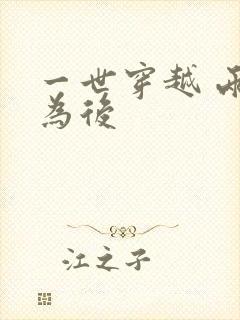 一世穿越
為後
江之子